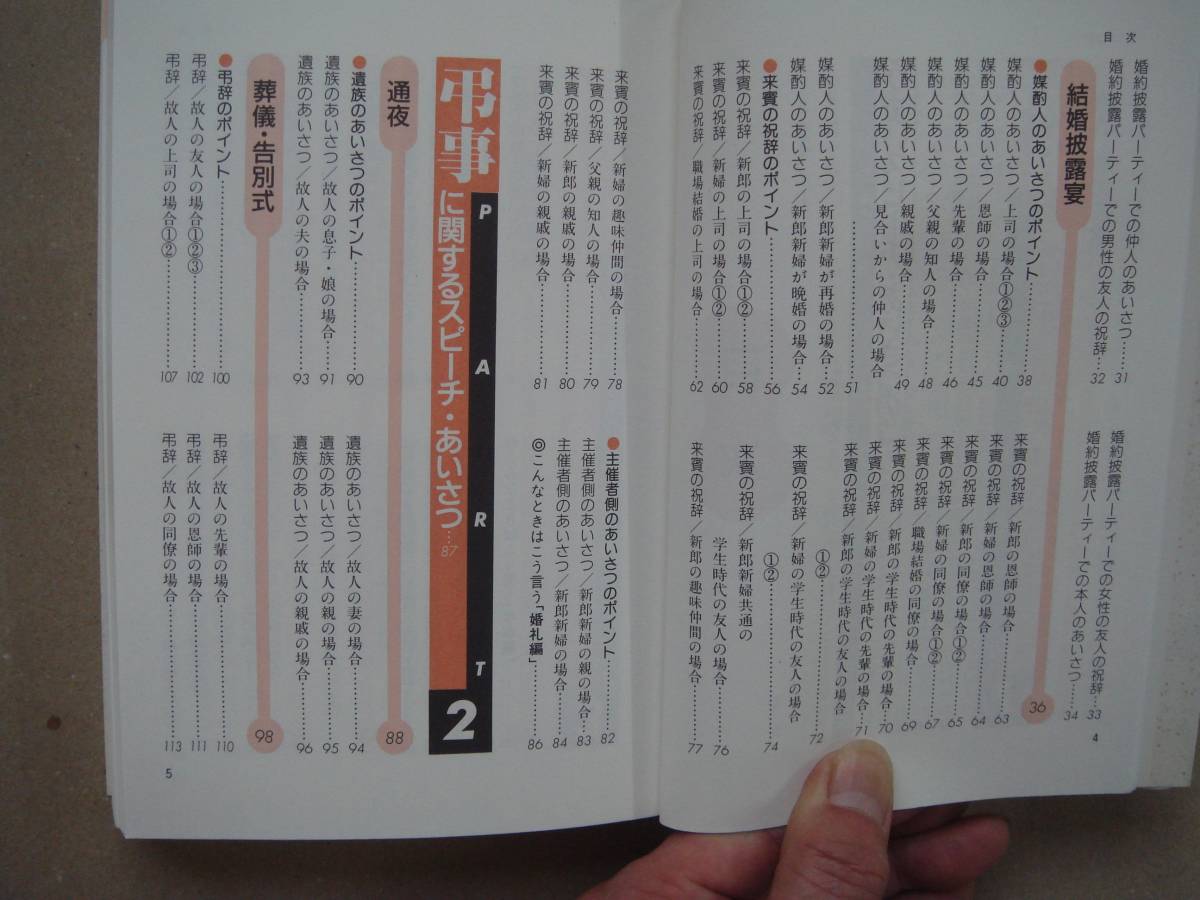 目次
婚約披露パーティーでの仲人のあいさつ……31
婚約披露パーティーでの男性の友人の祝辞…32
婚約披露パーティーでの女性の友人の祝辞…33
婚約披露パーティーでの本人のあいさつ……34
結婚披露宴 36
●媒酌人のあいさつのポイント……38
媒酌人のあいさつ／上司の場合①②③……40
媒酌人のあいさつ／恩師の場合……45
媒酌人のあいさつ／先輩の場合……46
媒酌人のあいさつ／父親の知人の場合……48
媒酌人のあいさつ／親戚の場合……49
媒酌人のあいさつ／見合いからの仲人の場合
……51
媒酌人のあいさつ／新郎新婦が再婚の場合……52
媒酌人のあいさつ／新郎新婦が晩婚の場合…54
●来賓の祝辞のポイント……56
来賓の祝辞／新郎の上司の場合①②……58
来賓の祝辞／新婦の上司の場合①②……60
来賓の祝辞／職場結婚の上司の場合……62
来賓の祝辞／新郎の恩師の場合……63
来賓の祝辞／新婦の恩師の場合……64
来賓の祝辞／新郎の同僚の場合①②……65
来賓の祝辞／新婦の同僚の場合①②……67
来賓の祝辞／職場結婚の同僚の場合……69
来賓の祝辞／新郎の学生時代の先輩の場合…70
来賓の祝辞／新婦の学生時代の先輩の場合…71
来賓の祝辞／新郎の学生時代の友人の場合
①②……72
来賓の祝辞／新婦の学生時代の友人の場合
①②……74
来賓の祝辞／新郎新婦共通の
学生時代の友人の場合……76
来賓の祝辞／新郎の趣味仲間の場合……77
4
来賓の祝辞／新婦の趣味仲間の場合……78
来賓の祝辞／父親の知人の場合……79
来賓の祝辞／新郎の親戚の場合……80
来賓の祝辞／新婦の親戚の場合……81
●主催者側のあいさつのポイント……82
主催者側のあいさつ／新郎新婦の親の場合…83
主催者側のあいさつ／新郎新婦の場合……84
◎こんなときはこう言う「婚礼編」……86
PART 2
弔事に関するスピーチ・あいさつ…87
通夜 88
●遺族のあいさつのポイント……90
遺族のあいさつ／故人の息子・娘の場合……91
遺族のあいさつ／故人の夫の場合……93
遺族のあいさつ／故人の妻の場合……94
遺族のあいさつ／故人の親の場合……95
遺族のあいさつ／故人の親戚の場合……96
葬儀・告別式 98
●弔辞のポイント……100
弔辞／故人の友人の場合①②③……102
弔辞／故人の上司の場合①②……107
弔辞／故人の先輩の場合……110
弔辞／故人の恩師の場合……111
弔辞／故人の同僚の場合……113
5